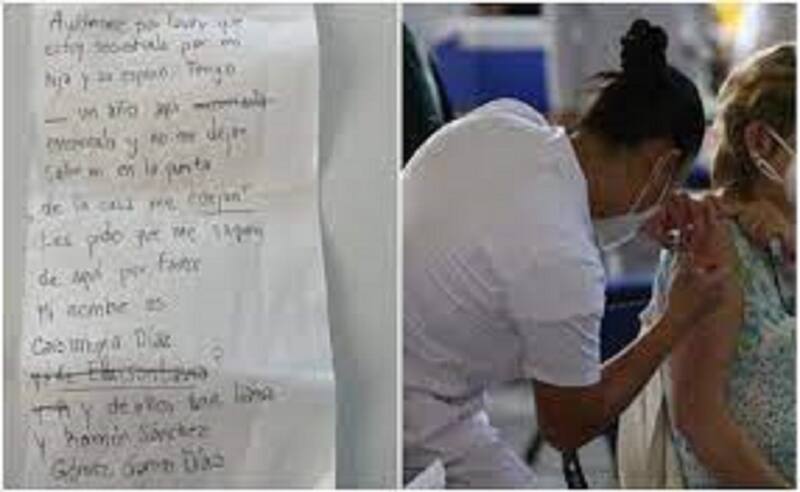 Auxilienme por favor que
estoy secuestrada por mi
hija y su esposo. Tengo
un año aqui
encerrada y no me dejan
salir ni en la puerta
de la casa me
Les pido que me saquen
de aquí por favor
Mi nombre es
Díaz
y de ellos Lama
y Ramón Sánchez
Gómez Díaz